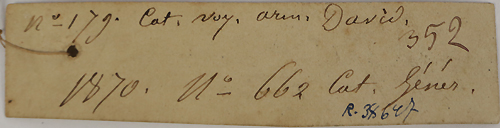 nº 179. Cat. voy. arm. David.
352
1870. Nº 662 Cat. Génér.
R. 38647